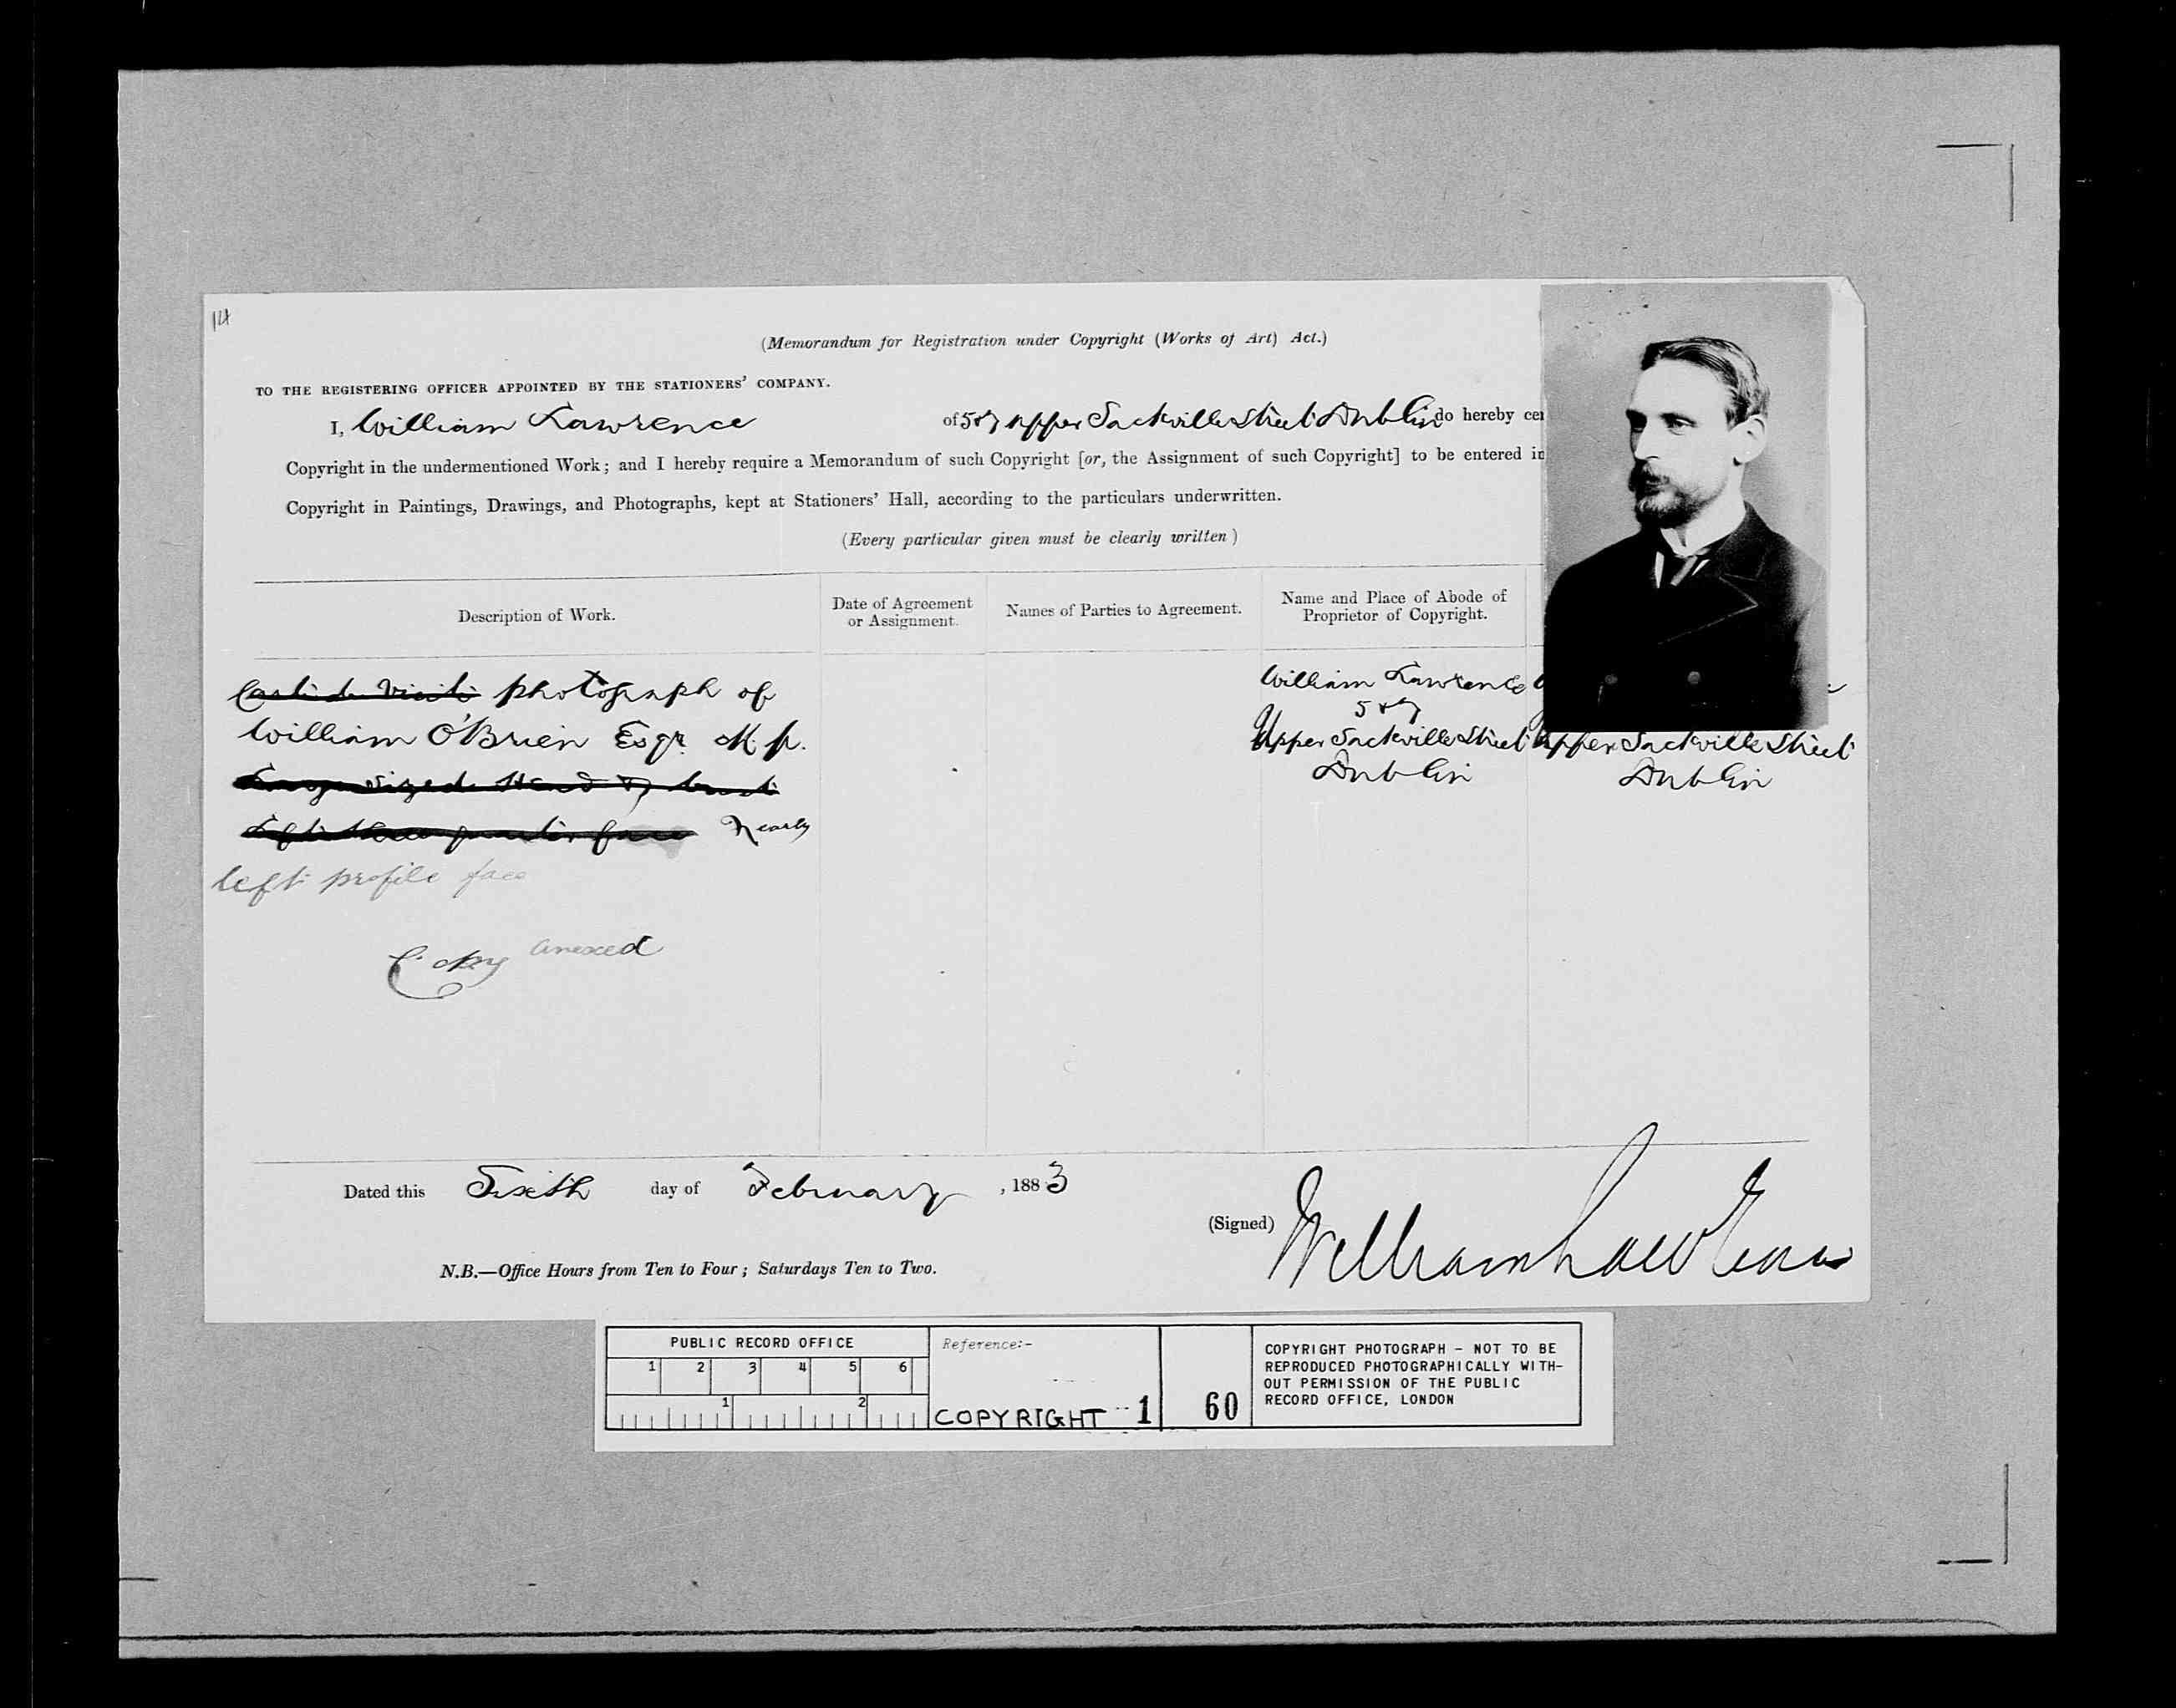 14
(Memorandum for Registration under Copyright (Works of Art) Act.)
TO THE REGISTERING OFFICER APPOINTED BY THE STATIONERS' COMPANY.
I, William Lawrence of 5 & 7 Upper Sackville Street Dublin do hereby cer
Copyright in the undermentioned Work; and I hereby require a Memorandum of such Copyright [or, the Assignment of such Copyright] to be entered in
Copyright in Paintings, Drawings, and Photographs, kept at Stationers' Hall, according to the particulars underwritten.
(Every particular given must be clearly written)
Description of Work.
Date of Agreement
or Assignment.
Names of Parties to Agreement.
Name and Place of Abode of
Proprietor of Copyright.
Carte de Visite photograph of
William O'Brien Esqr. M.P.
Large sized Head & bust
Left three quarter face Nearly
left profile face
Copy anexed
William Lawrence
5 & 7
Upper Sackville Street
Dublin
Upper Sackville Street
Dublin
Dated this Sixth day of February, 1883
(Signed) William Lawrence
N.B.—Office Hours from Ten to Four; Saturdays Ten to Two.
PUBLIC RECORD OFFICE
1 2 3 4 5 6
1 2
Reference:-
COPYRIGHT 1
60
COPYRIGHT PHOTOGRAPH - NOT TO BE
REPRODUCED PHOTOGRAPHICALLY WITH-
OUT PERMISSION OF THE PUBLIC
RECORD OFFICE, LONDON